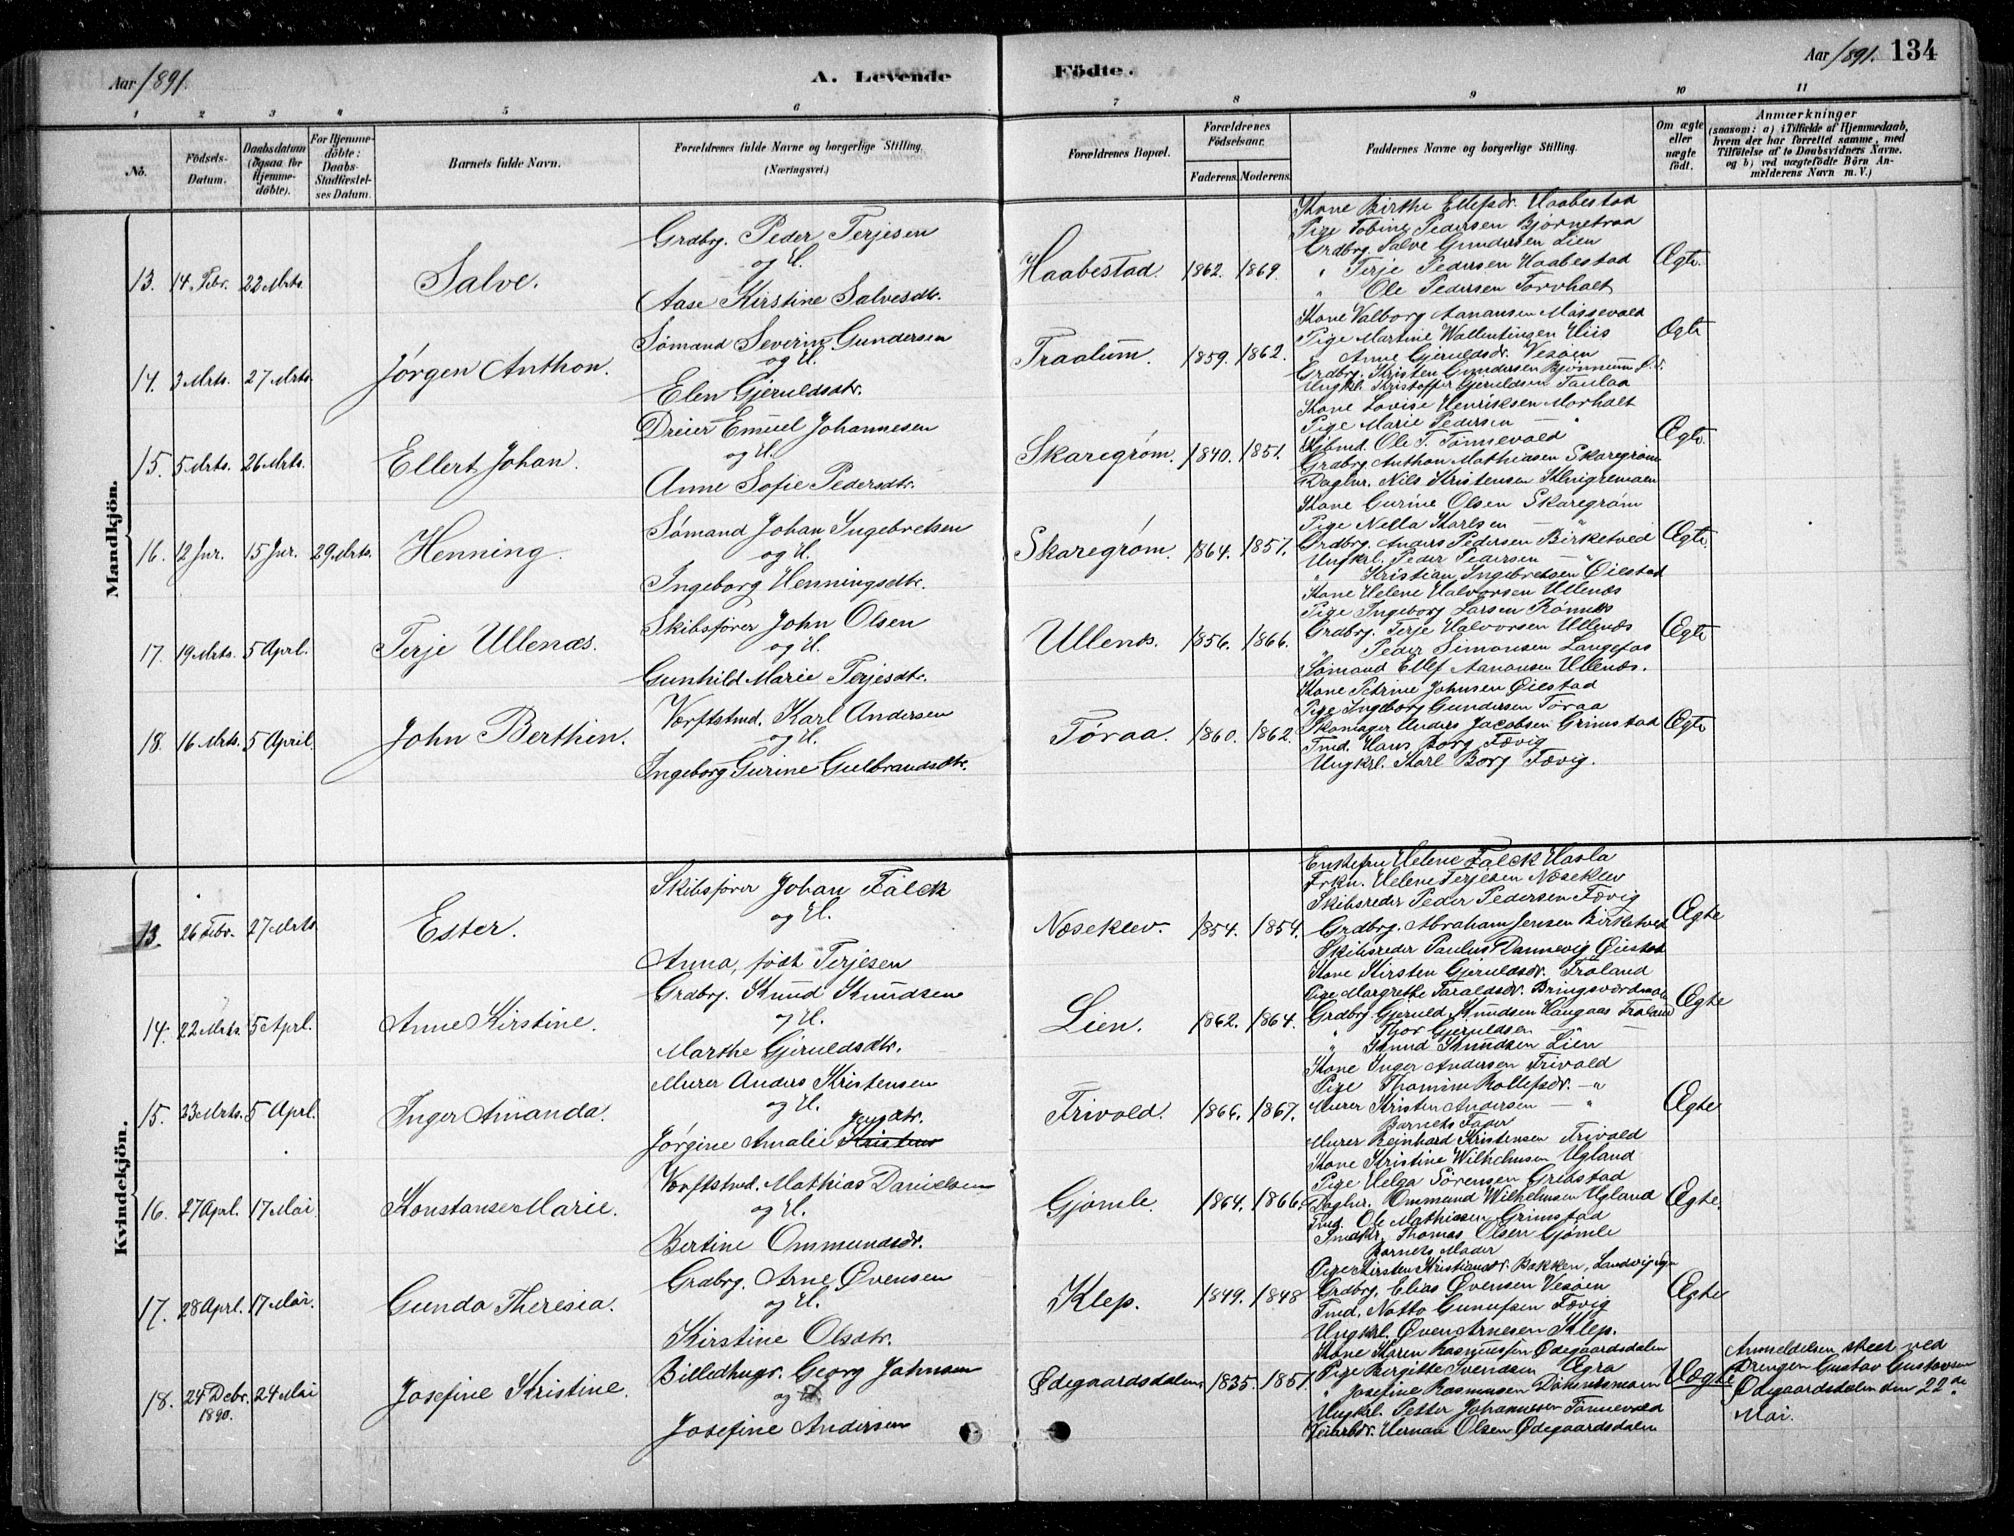 Aar 1891.
A. Levende
Födte.
Aar 1891. 134
1 2 3 4 5 6 7 8 9 10 11
No.
Födsels-Datum.
Daabsdatum (ogsaa for Hjemme-döbte).
For Hjemme-döbte: Daabs-Stadfæstel-ses Datum.
Barnets fulde Navn.
Forældrenes fulde Navne og borgerlige Stilling. (Næringsvei.)
Forældrenes Bopæl.
Forældrenes Födselsaar.
Faderens. Moderens.
Faddernes Navne og borgerlige Stilling.
Om ægte eller uægte födt.
Anmærkninger
(saasom: a) i Tilfælde af Hjemmedaab, hvem der har forrettet samme, med Tilföielse af to Daabsvidners Navne, og b) ved uægtefödte Börn An-melderens Navn m. V.)
Mandkjön.
13. 14 Febr. 22 Mrts. Salve.
Grdbrg. Peder Terjesen
og H.
Aase Kirstine Salvesdtr.
Haabestad. 1862. 1869.
Kone Birthe Ellefsdr. Haabestad
Pige Tobine Pedersen Bjørnetraa
Grdbrg. Salve Gundersen Lien
" Terje Pedersen Haabestad
" Ole Pedersen Torvhalt
Ægte.
14. 3 Mrts. 27 Mrts. Jørgen Anthon.
Sømand Severin Gundersen
og H.
Elen Gjeruldsdtr.
Traalum. 1859. 1862.
Kone Valborg Aanansen Mossevold
Pige Martine Wallentinsen Hiis
" Anne Gjeruldsdr. Vesøen
Grdbrg. Kristen Gundersen Bjønnum
Ungkrl. Kristoffer Gjeruldsen Taulaa
Ægte
15. 5 Mrts. 26 Mrts. Ellert Johan.
Dreier Emuel Johannesen
og H.
Anne Sofie Pedersdtr.
Skaregrøm. 1840. 1851.
Kone Lovise Henriksen Morholt
Pige Marie Pedersen — "
Sjømd. Ole T. Tønnevold
Grdbrg. Anthon Mathiasen Skaregrøm
Daglnr. Nils Kristensen
Ægte
16. 12 Jnr. 15 Jnr. 29 Mrts. Henning.
Sømand Johan Ingebretsen
og H.
Ingeborg Henningsdtr.
Skaregrøm. 1864. 1857.
Kone Gurine Olsen Skaregrøm
Pige Nella Karlsen — "
Grdbrg. Anders Pedersen Birketved
Ungkrl. Peder Pedersen — "
" Kristian Ingebretsen Øiestad
Ægte.
17. 19 Mrts. 5 Aprl. Terje Ullenæs.
Skibsfører John Olsen
og H.
Gunhild Marie Terjesdtr.
Ullenæs. 1856. 1866.
Kone Helene Halvorsen Ullenæs
Pige Ingeborg Larsen Rønnes
Grdbrg. Terje Halvorsen Ullenæs
" Peder Simonsen Langefos
Sømand Ellef Aanonsen Ullenæs.
Ægte
18. 16 Mrts. 5 April. John Berthin.
Værftstmd. Karl Andersen
og H.
Ingeborg Gurine Gulbrandsdtr.
Tøraa. 1860. 1862.
Kone Petrine Johnsen Øiestad
Pige Ingeborg Gundersen Tøraa
Skomager Anders Jacobsen Grimstad
Tmd. Hans Borg Fævig
Ungkrl. Karl Borg Fævig.
Ægte
Kvindekjön.
13. 26 Febr. 27 Mrts. Ester.
Skibsfører Johan Falck
og H.
Anna, født Terjesen
Næseklev. 1854. 1854.
Enkefru Helene Falck Hasla
Frkn. Helene Terjesen Næseklev
Skibsreder Peder Pedersen Fævig
Grdbrg. Abraham Jensen Birketved
Skibsreder Paulus Dannevig Øiestad
Ægte
14. 22 Mrts. 5 Aprl. Anne Kirstine.
Grdbrg. Knud Knudsen
og H.
Marthe Gjeruldsdtr.
Lien. 1862. 1864.
Kone Kirsten Gjeruldsdr. Froland
Pige Margrethe Taraldsdr. Bringsværdmoen
Grdbrg. Gjeruld Knudsen Haugaas Froland
" Thor Gjeruldsen — "
" Knud Knudsen Lien
Ægte
15. 23 Mrts. 5 Aprl. Inger Amanda.
Murer Anders Kristensen
og H.
Jørgine Amalie Jensdtr.
Trivold. 1866. 1867.
Kone Inger Andersen Trivold
Pige Thomine Rollefsdr. — "
Murer Kristen Andersen — "
Barnets Fader
Murer Reinhard Kristensen Trivold
Ægte
16. 27 Aprl. 17 Mai Konstanse Marie.
Værftstmd. Mathias Danielsen
og H.
Bertine Ommundsdr.
Gjømle. 1864. 1866.
Kone Kristine Wilhelmsen Ugland
Pige Helga Sørensen Grimstad
Daglnr. Ommund Wilhelmsen Ugland
Tmd. Ole Mathiasen Grimstad
Thomas Olsen Gjømle
Ægte.
17. 28 Aprl. 17 Mai. Gunda Theresia.
Grdbrg. Arne Øvensen
og H.
Kirstine Olsdtr.
Klep. 1849. 1848
Barnets Moder
Pige Kirsten Kristiansdr. Bakken, Landvig Sgn
Grdbrg. Elias Øvensen Vesøen
Tmd. Notto Gunufsen Fævig
Ungkrl. Øven Arnesen Klep.
Ægte
18. 24 Decbr. 1890. 24 Mai Josefine Kristine.
Billedhugr. Georg Johnsen
og
Josefine Andersen
Ødegaardsdalen 1835. 1851.
Kone Karen Rasmussen Ødegaardsdalen
Pige Bergitte Svendsen Ægra
" Josefine Rasmusen
Ungkrl. Petter Johannesen Tønnevold
Herman Olsen Ødegaardsdalen
Uægte
Anmeldelsen skeet ved
Drengen Gustav Gustavsen
Ødegaardsdalen den 22de
Mai.